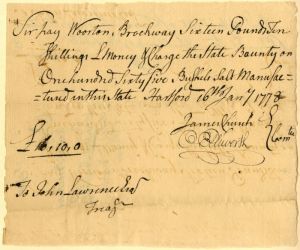 Sir Pay Wooston Brockway Sixteen Pounds Ten
Shillings L Money & Charge the State Bounty on
One hundred Sixty five Bushels Salt Manufac-
tured in this State Hartford 16th Jany 1778
James Church
£16,10,0
To John Lawrence Esqr
Treasr